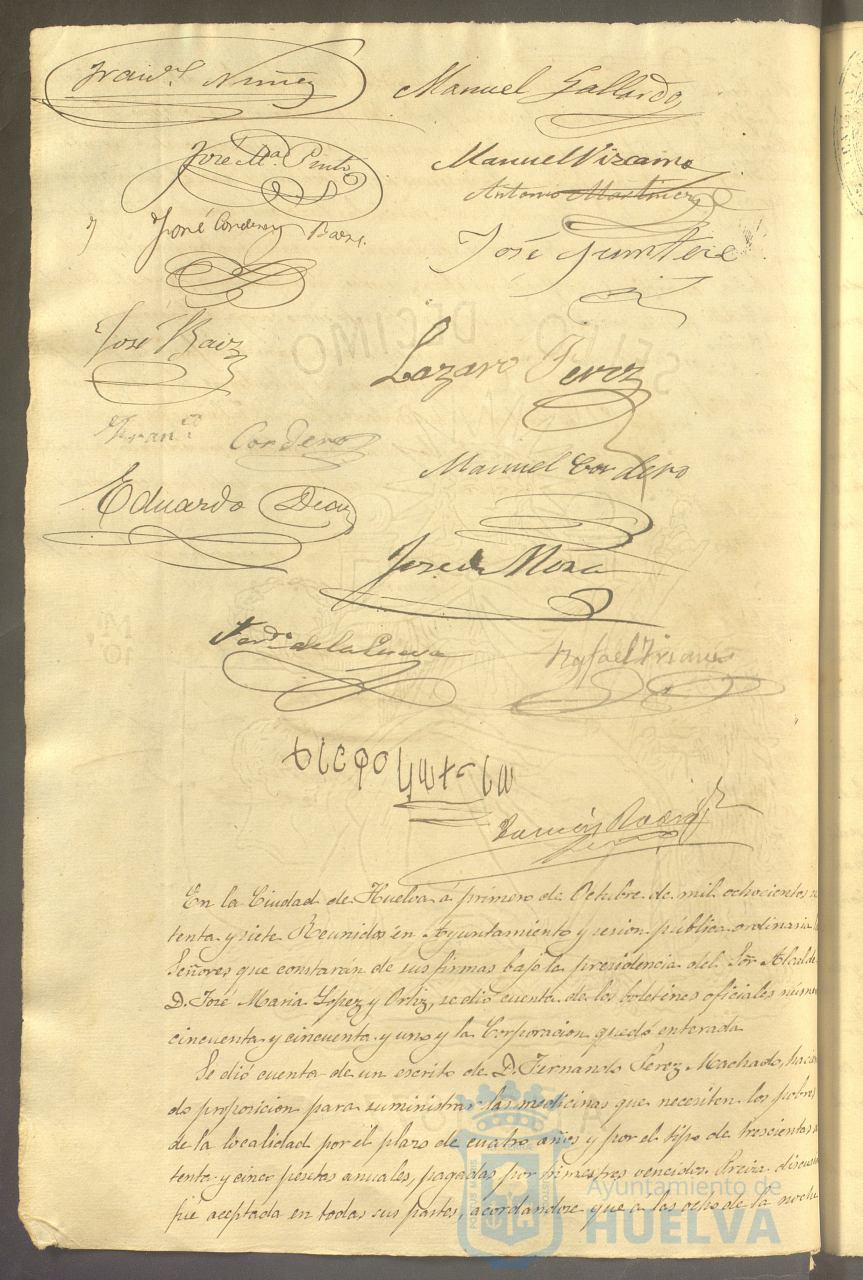 Franco Nuñez
Manuel Gallardo
José Mª Pinto
Manuel Vizcaino
Antonio Martinez
y José Cordero Baez.
José
José Baez
Lazaro Perez
Franco Cordero
Manuel Cordero
Eduardo Diaz
José de Mora
de la Cueva
Rafael
Diego
Ramón
En la Ciudad de Huelva á primero de Octubre de mil ochocientos
tenta y siete Reunidos en Ayuntamiento y sesion pública ordinaria
Señores que constarán de sus firmas bajo la presidencia del Sor Alcalde
D. José Maria Lopez y Ortiz, se dió cuenta de los boletines oficiales núme
cincuenta y cincuenta y uno y la Corporacion quedó enterada
Se dió cuenta de un escrito de D. Fernando Perez Machado, hacien
do proposicion para suministrar las medicinas que necesiten los pobres
de la localidad por el plazo de cuatro años y por el tipo de trescientas
tenta y cinco pesetas anuales, pagadas por trimestres vencidos. Previa discusion
fue aceptada en todas sus partes, acordandose que a las ocho de la noche
Ayuntamiento de
HUELVA
SELLO DÉCIMO